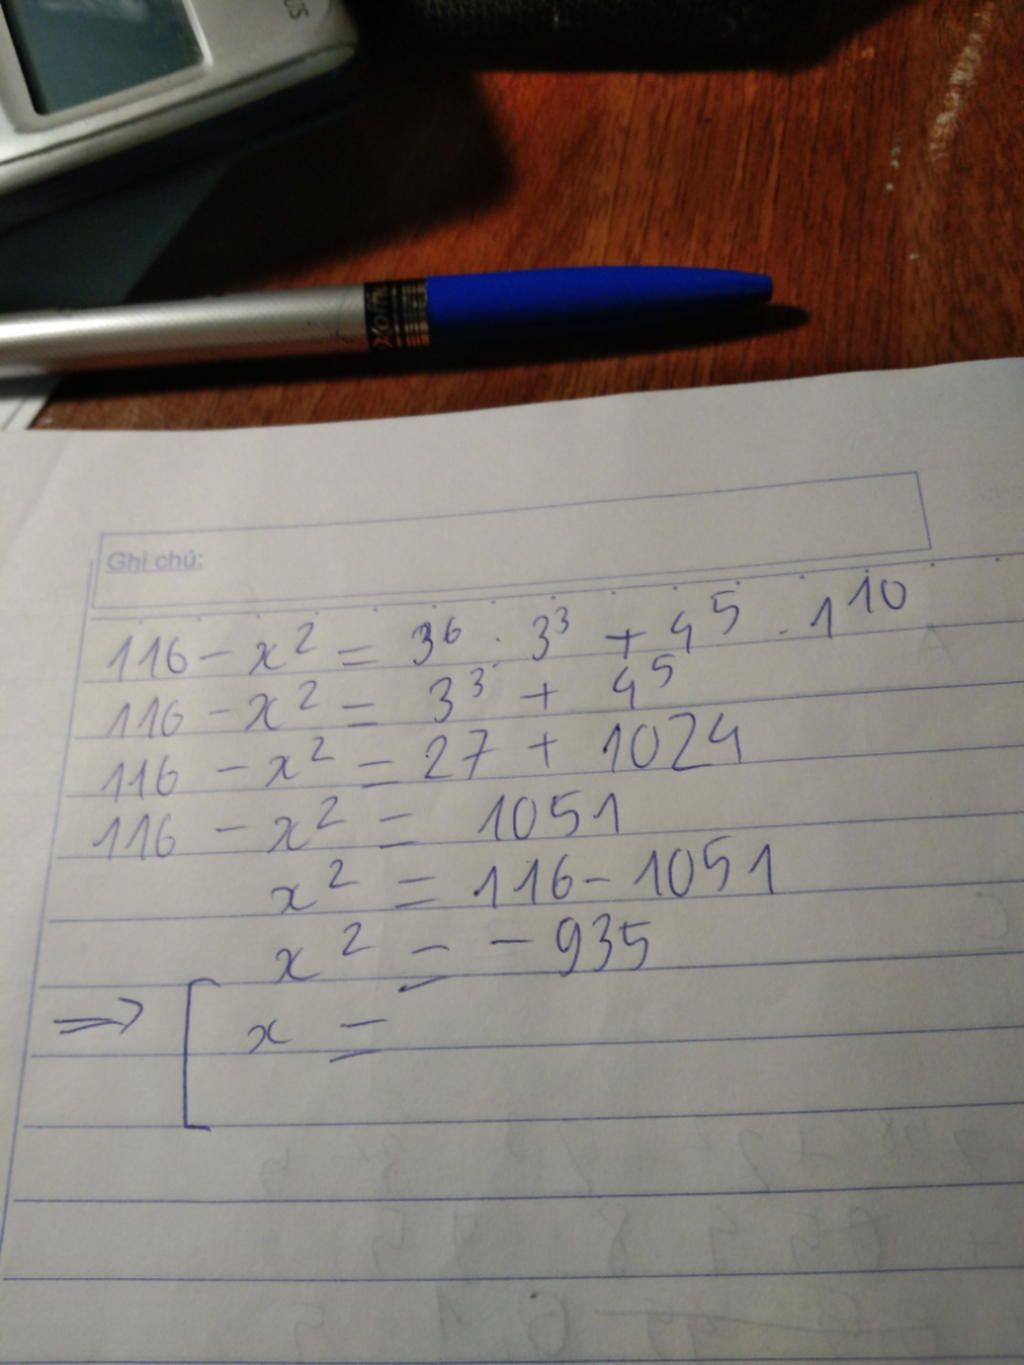 US
Ghi chú:
116 - x² = 3⁶ · 3³ + 4⁵ · 1¹⁰
116 - x² = 3³ + 4⁵
116 - x² = 27 + 1024
116 - x² = 1051
x² = 116 - 1051
x² = - 935
⇒ [ x =